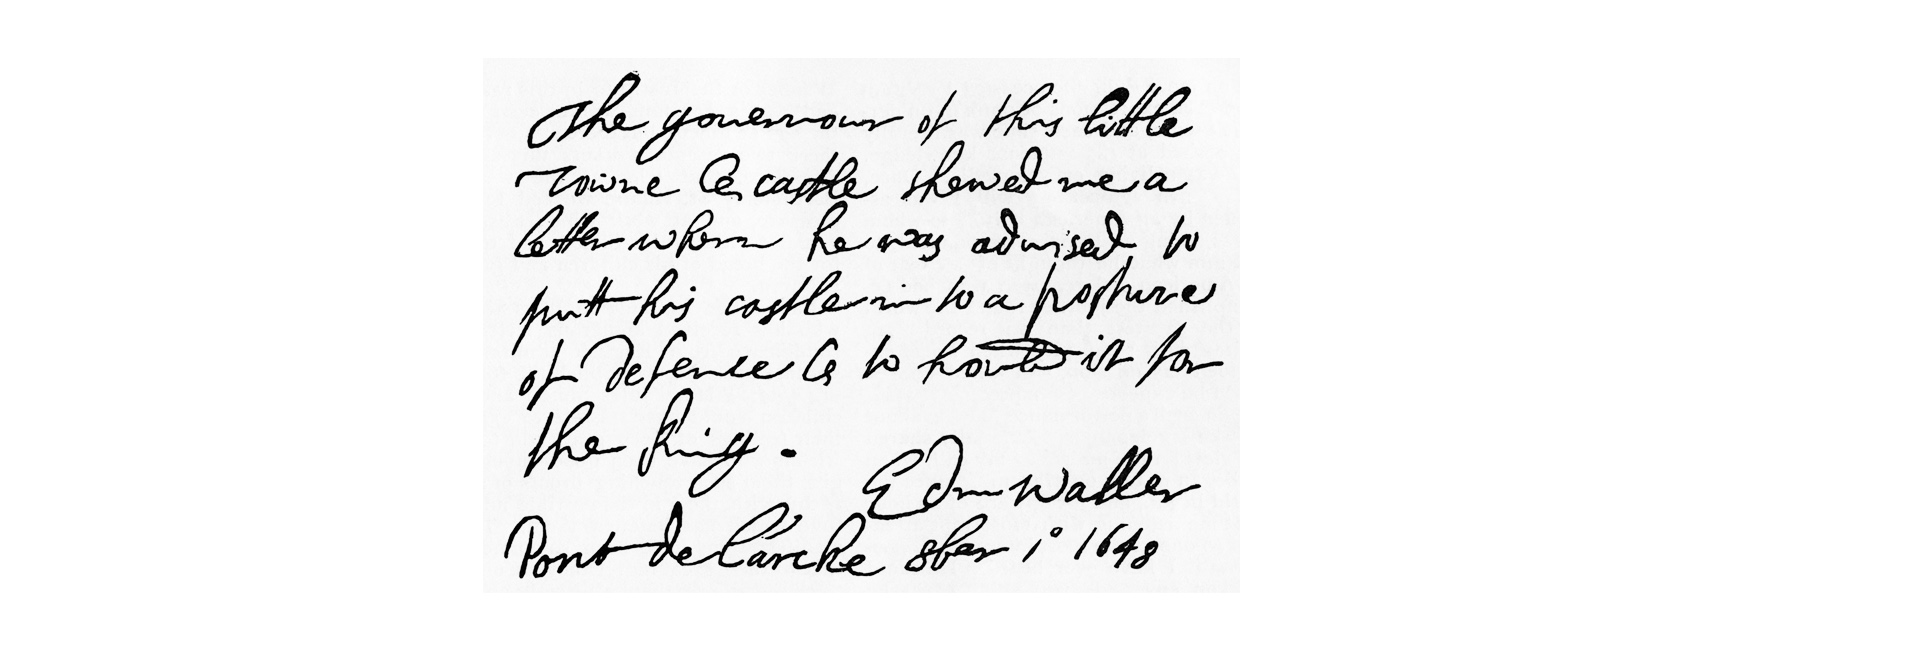 The gouernour of this little
Towne & castle shewed me a
letter wherin he was advised to
putt his castle in to a posture
of defence & to hould it for
the King.
Edm Waller
Pont de l'arche 8ber 1° 1648